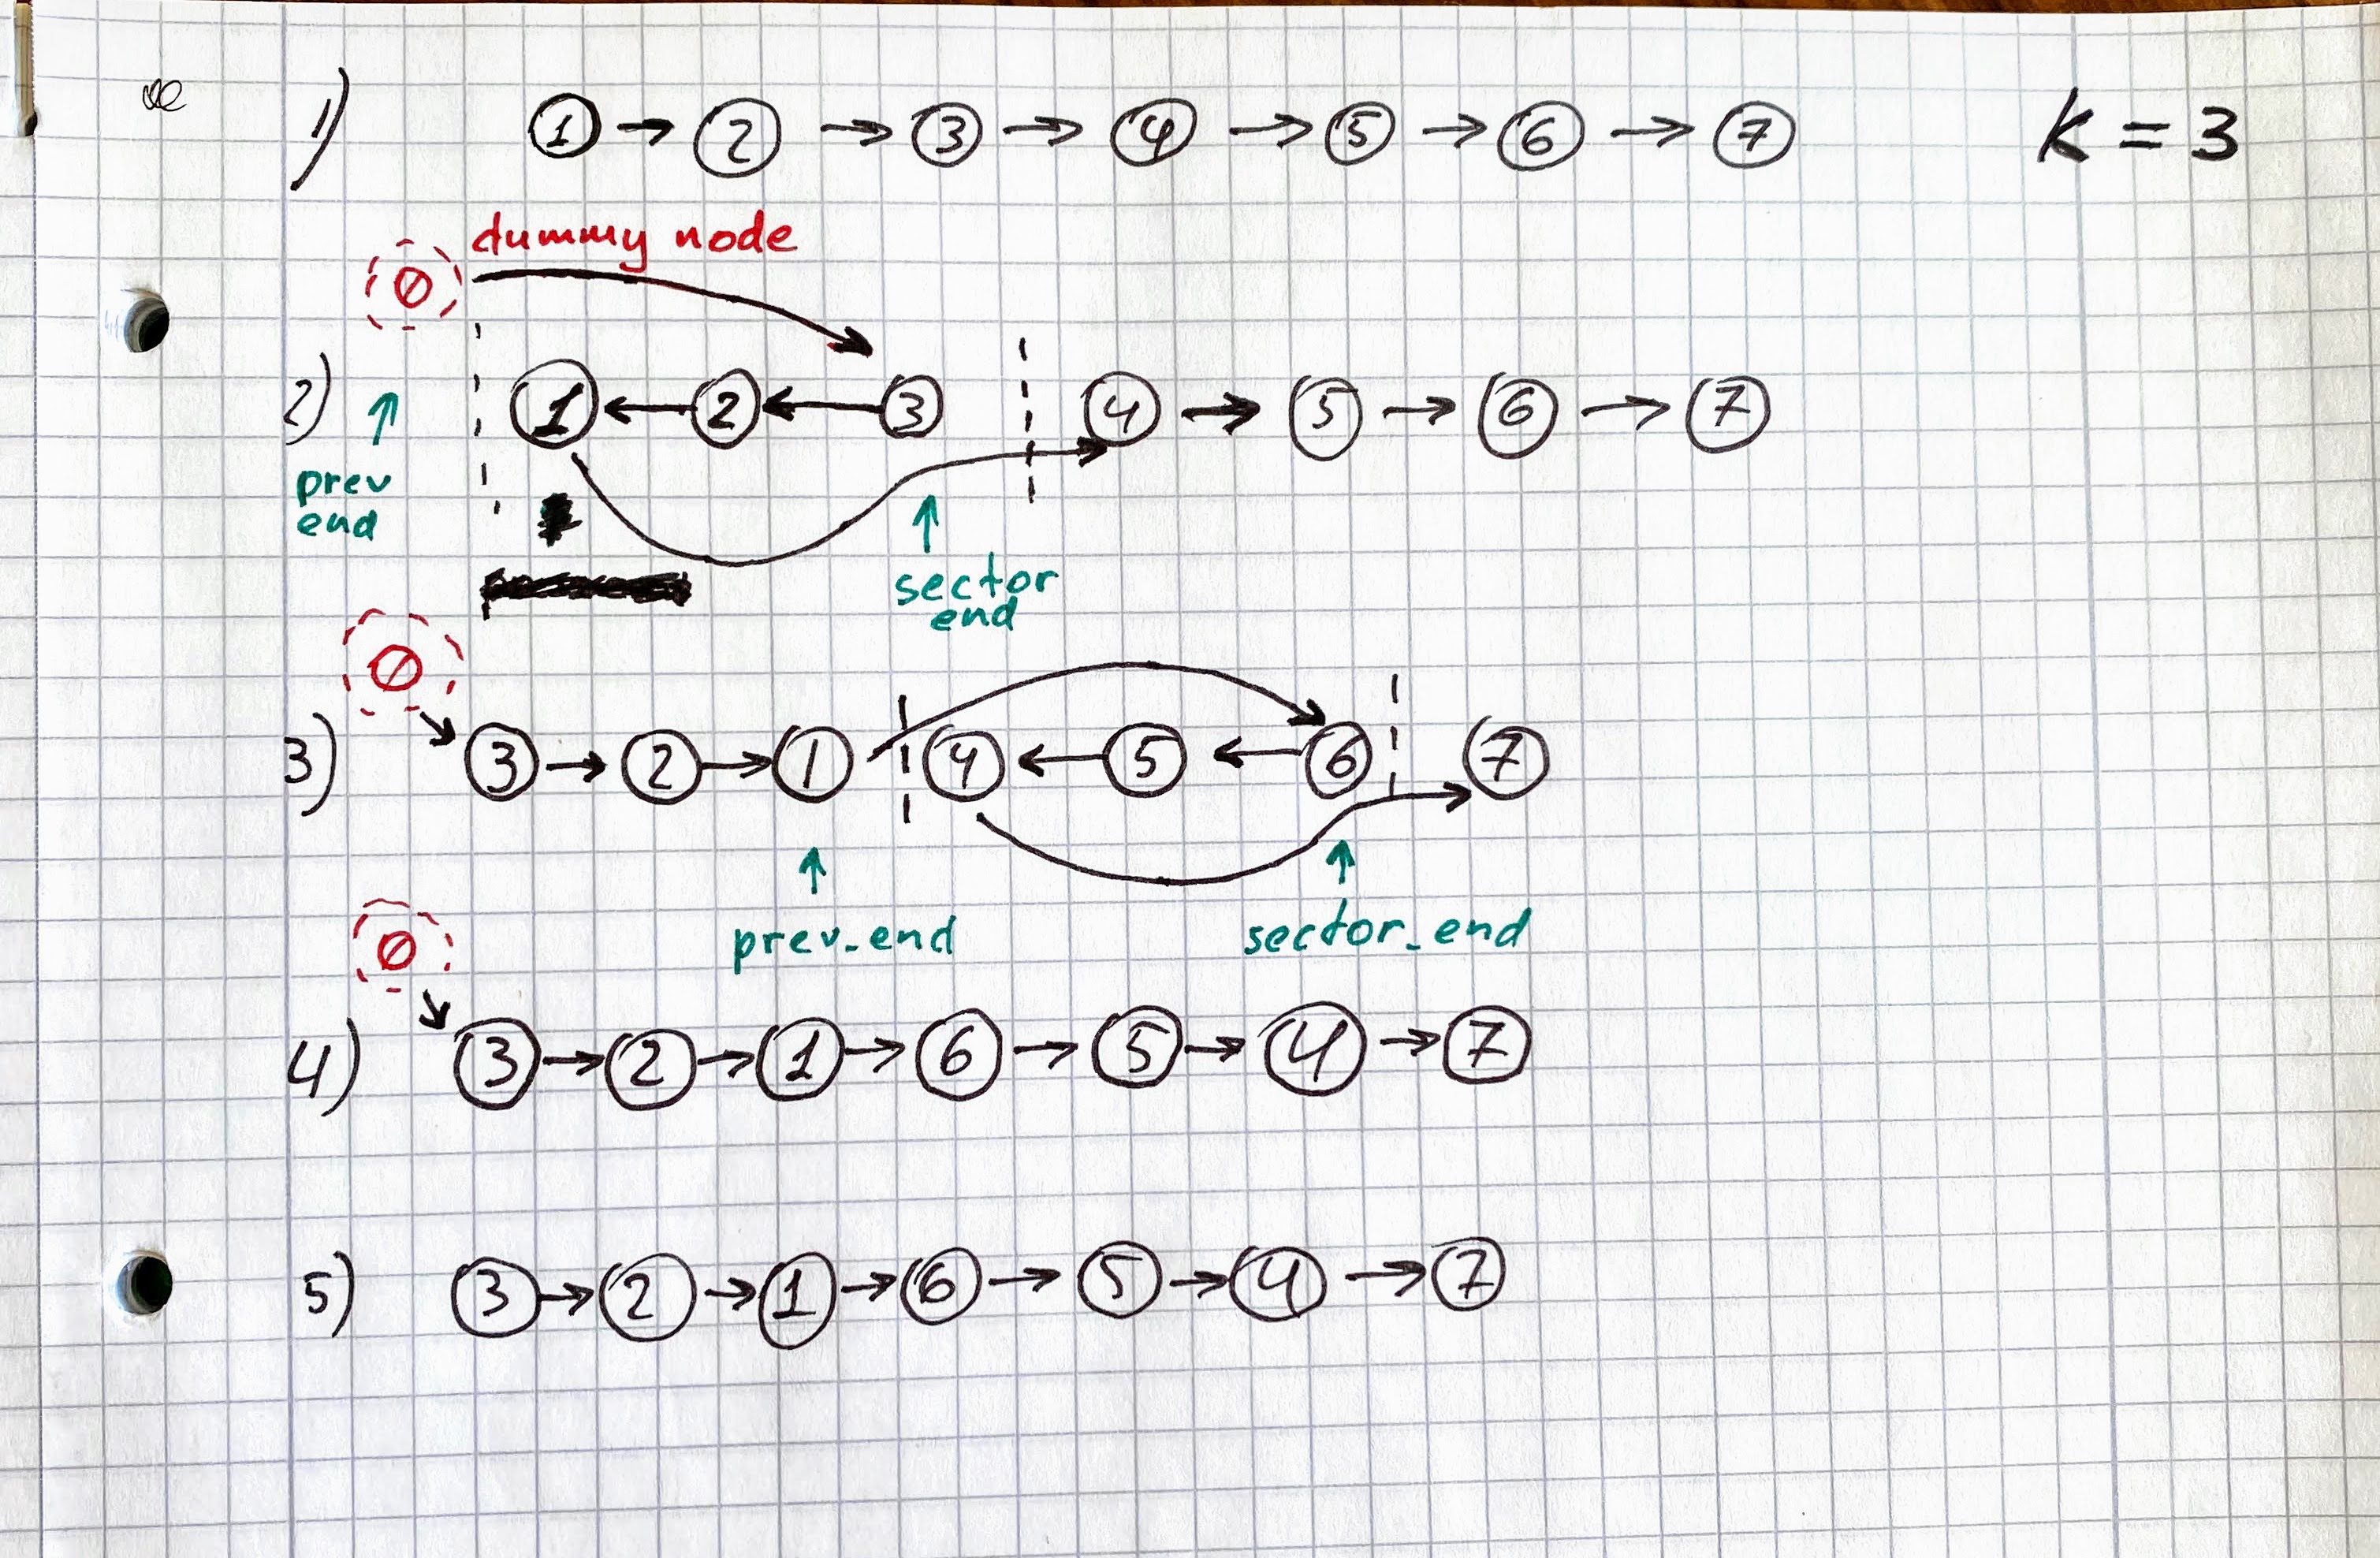 1) 1 → 2 → 3 → 4 → 5 → 6 → 7 K = 3
dummy node
0
2) 1 ← 2 ← 3 4 → 5 → 6 → 7
prev
end
sector
end
0
3) 3 → 2 → 1 4 ← 5 ← 6 7
prev_end sector_end
0
4) 3 → 2 → 1 → 6 → 5 → 4 → 7
5) 3 → 2 → 1 → 6 → 5 → 4 → 7